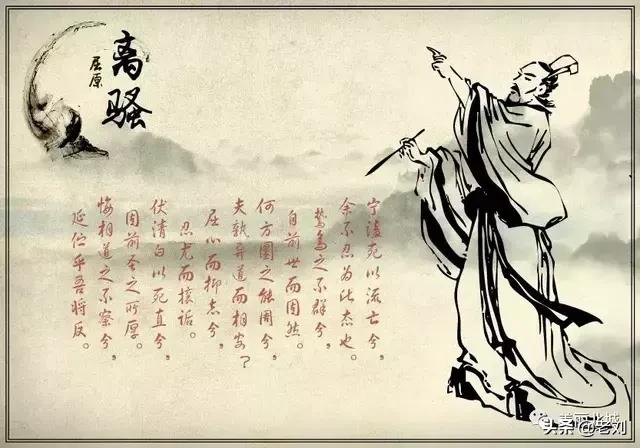 离骚
屈原
宁溘死以流亡兮，
余不忍为此态也。
鸷鸟之不群兮，
自前世而固然。
何方圜之能周兮，
夫孰异道而相安？
屈心而抑志兮，
忍尤而攘诟。
伏清白以死直兮，
固前圣之所厚。
悔相道之不察兮，
延伫乎吾将反。
美丽北城
头条@老刘